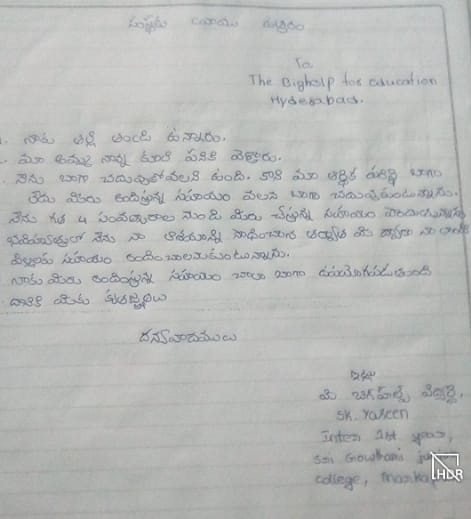 To
The Bighelp for education
Hyderabad.
1. నాకు తల్లి తండ్రి ఉన్నారు.
మా అమ్మ నాన్న కూలి పనికి వెళ్తారు.
నేను బాగా చదువుకోవాలని ఉంది. కాని మా ఆర్థిక పరిస్థితి బాగా
లేదు మీరు అందిస్తున్న సహాయం వలన బాగా చదువుకుంటున్నాను.
నేను గత 4 సంవత్సరాల నుండి మీరు చేస్తున్న సహాయం పొందుతున్నాను
భవిష్యత్తులో నేను నా ఆశయాన్ని సాధించిన తర్వాత మీ ద్వారా నా లాంటి
పిల్లలకు సహాయం అందించాలనుకుంటున్నాను.
నాకు మీరు అందిస్తున్న సహాయం చాలా బాగా ఉపయోగపడుతుంది
దానికి మీకు కృతజ్ఞతలు
ధన్యవాదములు
ఇట్లు
మీ బిగ్‌హెల్ప్ విద్యార్థి,
SK. Yaseen
Inter 1st year,
Sri Gowthami
college,
HDR